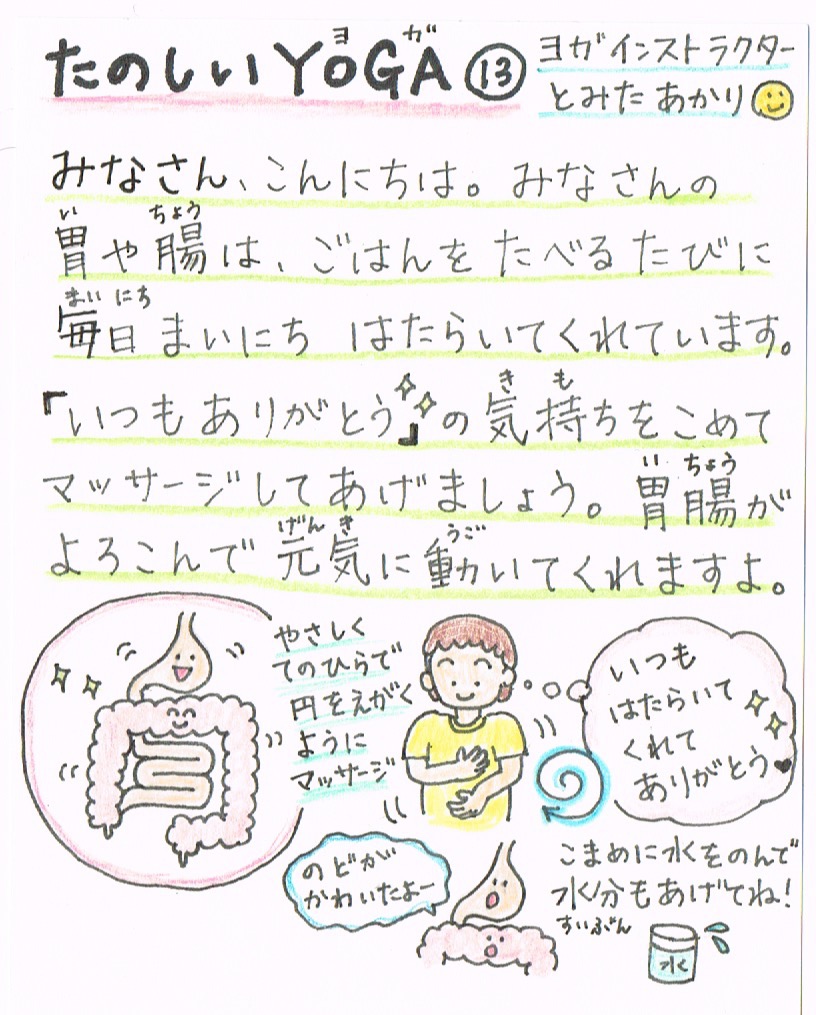 たのしいYOGA⑬
ヨガ
ヨガインストラクター
とみた あかり
みなさん、こんにちは。みなさんの
い ちょう
胃や腸は、ごはんをたべるたびに
まいにち
毎日まいにち はたらいてくれています。
き も
『いつもありがとう』の気持ちをこめて
マッサージしてあげましょう。胃腸が
い ちょう
げん き うご
よろこんで元気に動いてくれますよ。
やさしく
てのひらで
円をえがく
ように
マッサージ
いつも
はたらいて
くれて
ありがとう♥
のどが
かわいたよー
こまめに水をのんで
水分もあげてね!
すいぶん
水